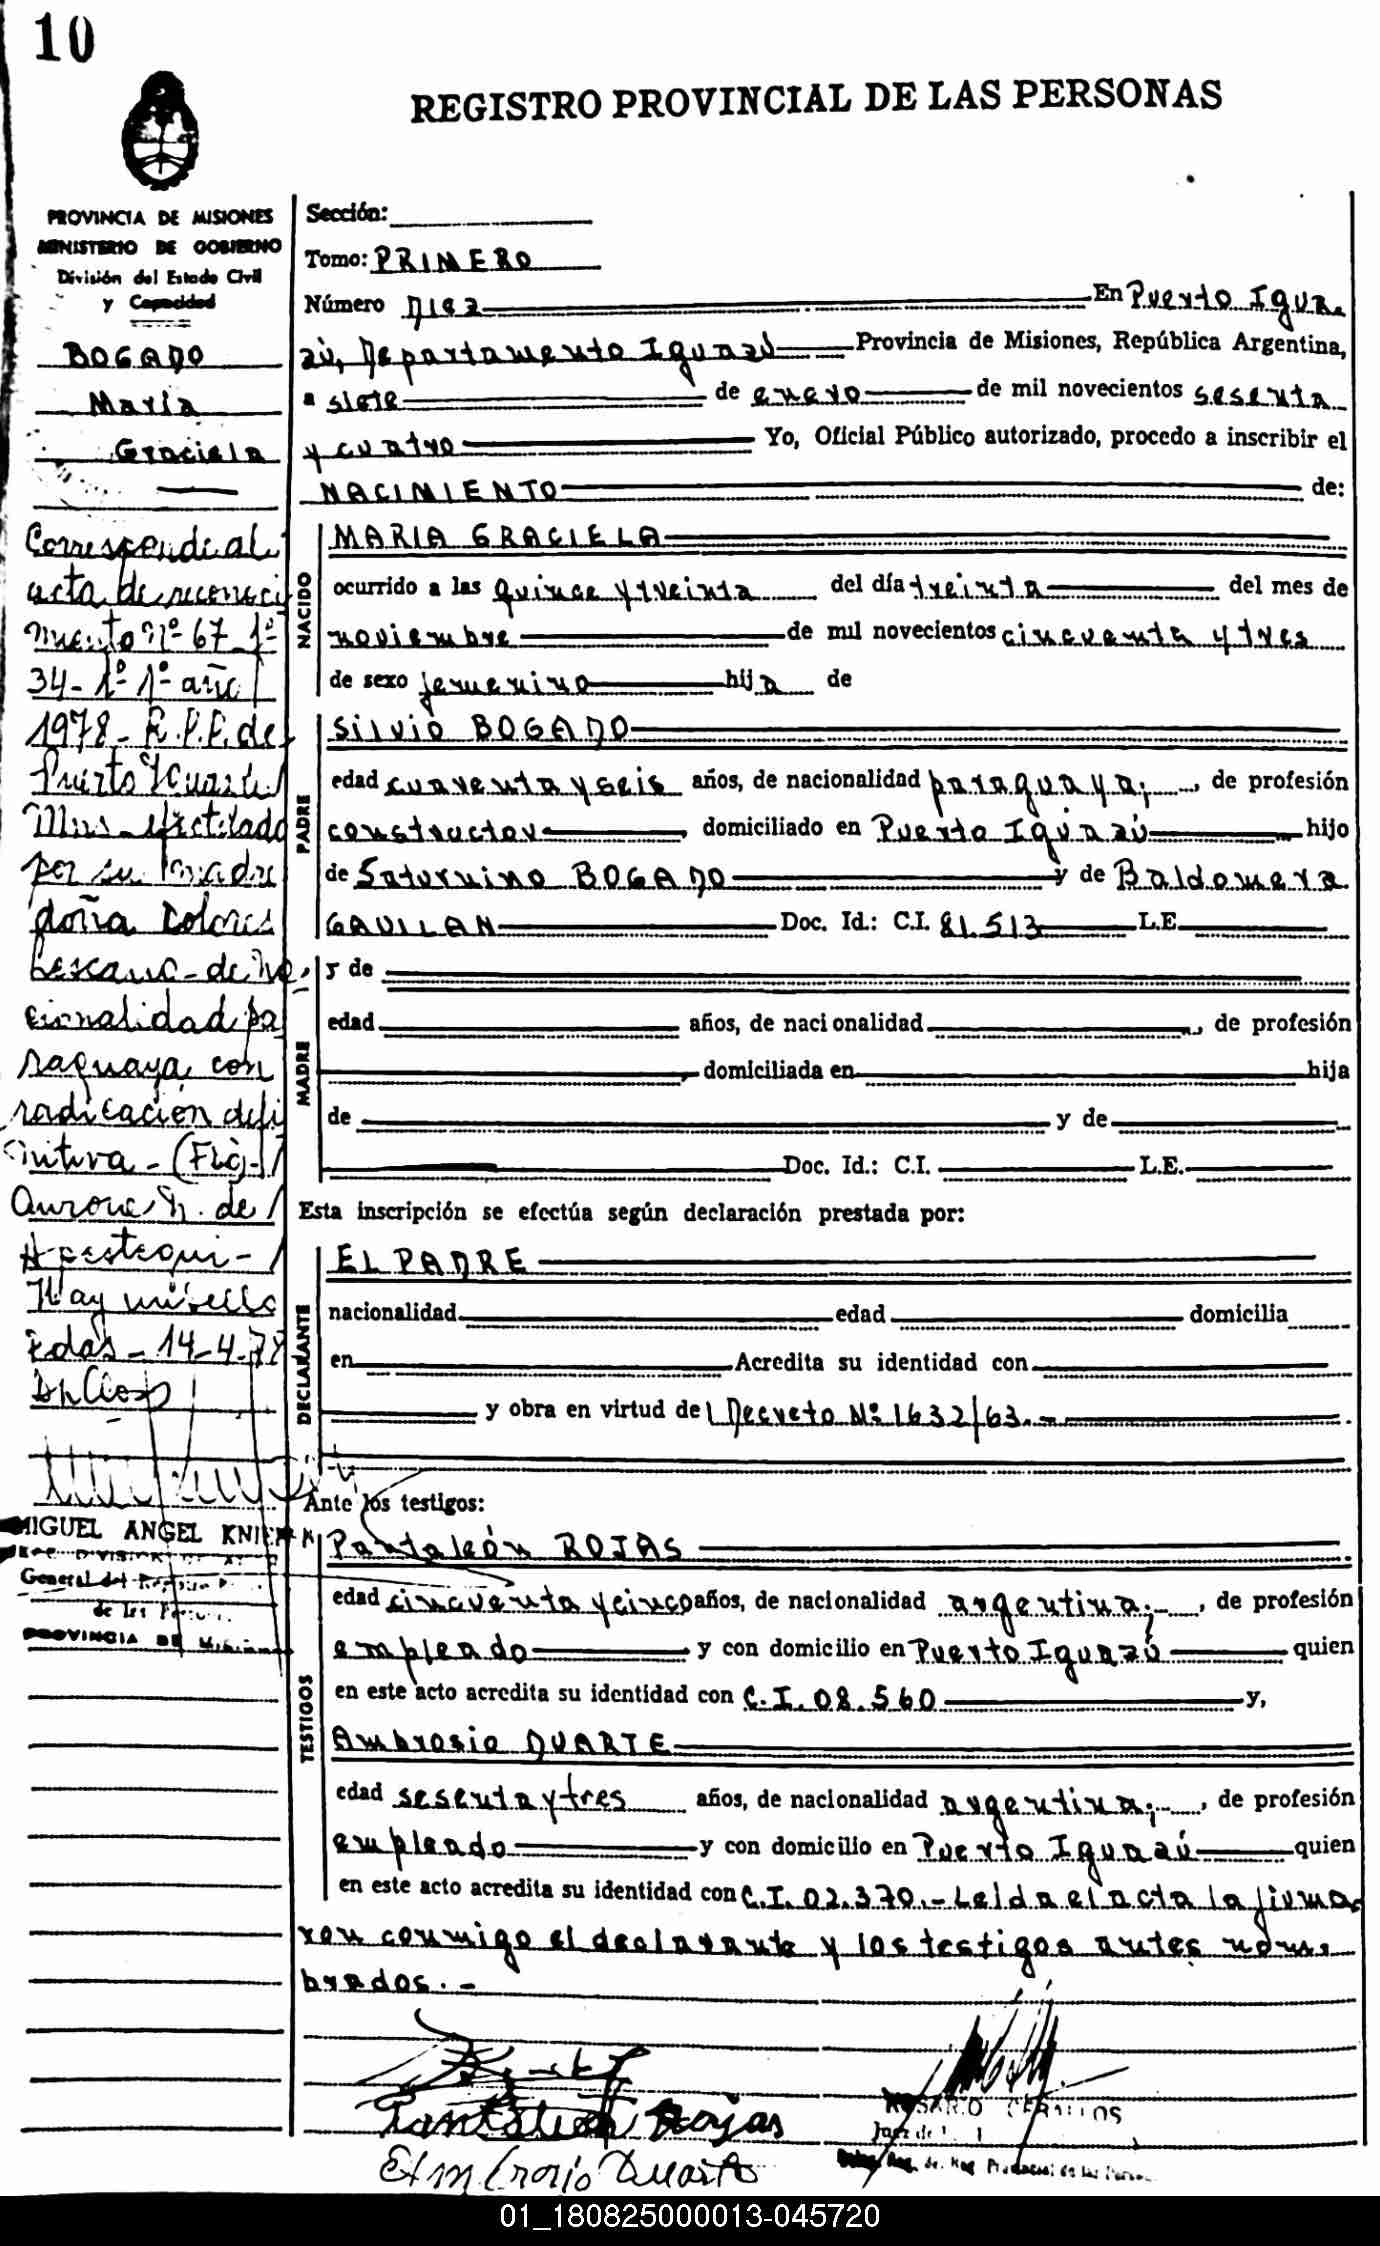 10
REGISTRO PROVINCIAL DE LAS PERSONAS
PROVINCIA DE MISIONES
MINISTERIO DE GOBIERNO
División del Estado Civil
y Capacidad
BOGADO
María
Graciela
Corresponde al
acta de reconoci
miento Nº 67 1º
34 - 1º 1º año
1978 - R.P.P. de
Puerto
Mnes efectuado
por su madre
doña Dolores
Lescano - de Na
cionalidad pa
raguaya con
radicación defi
nitiva - (Fdo)
de
Apestegui -
Hay un sello
Pdas - 14-4-78
MIGUEL ANGEL KNIE
General del
de las
PROVINCIA DE Misiones
Sección:
Tomo: PRIMERO
Número Diez En Puerto Igua
zú, Departamento Iguazú Provincia de Misiones, República Argentina,
a siete de enero de mil novecientos sesenta
y cuatro Yo, Oficial Público autorizado, procedo a inscribir el
NACIMIENTO de:
NACIDO
MARIA GRACIELA
ocurrido a las quince y treinta del día treinta del mes de
noviembre de mil novecientos cincuenta y tres
de sexo femenino hija de
PADRE
Silvio BOGADO
edad cuarenta y seis años, de nacionalidad paraguaya; , de profesión
constructor , domiciliado en Puerto Iguazú hijo
de Saturnino BOGADO y de Baldomera
GAVILAN Doc. Id.: C.I. 81.513 L.E.
MADRE
y de
edad años, de nacionalidad , de profesión
, domiciliada en hija
de y de
Doc. Id.: C.I. L.E.
Esta inscripción se efectúa según declaración prestada por:
DECLARANTE
EL PADRE
nacionalidad edad domicilia
en Acredita su identidad con
y obra en virtud del Decreto Nº 1632/63.-
Ante los testigos:
TESTIGOS
Pantaleón ROJAS
edad cincuenta y cinco años, de nacionalidad argentina; , de profesión
empleado y con domicilio en Puerto Iguazú quien
en este acto acredita su identidad con C.I. 08.560 y,
Ambrosio DUARTE
edad sesenta y tres años, de nacionalidad argentina; , de profesión
empleado y con domicilio en Puerto Iguazú quien
en este acto acredita su identidad con C.I. 02.370.- Leída el acta la firma
ron conmigo el declarante y los testigos antes nom.
brados.-
Pantaleón Rojas
Duarte
ROSARIO CEBALLOS
Juez de
Provincial de las
01_180825000013-045720